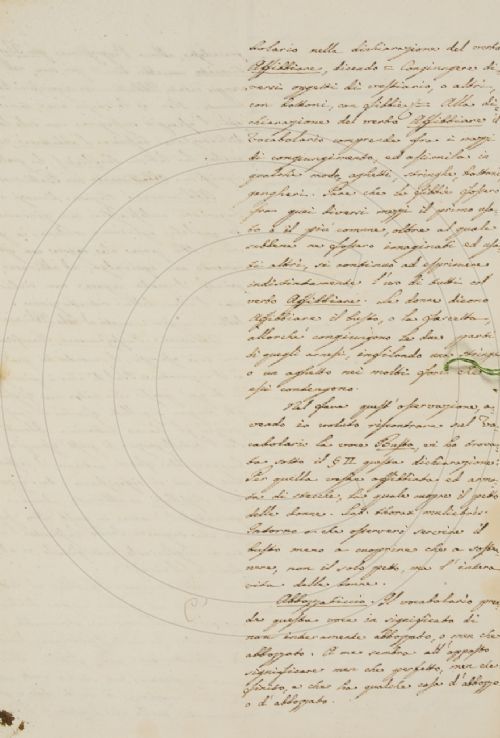 bolario nelle dichiarazione del verbo
Affibbiare, dicendo = Congiungere di
versi oggetti di vestiario, o altri,
con bottoni, con fibbie = Alla di
chiarazione del verbo Affibbiare il
Vocabolario comprende fra i mezzi
di congiungimento, ed assimila in
modo, aghetti, stringhe, bottoni
gangheri. Pare che le fibbie fossero
fran quei diversi mezzi il primo usa
to e il più comune, oltre al quale
sebbene ne fossero immaginati ed usa
ti altri, si continuò ad esprimere
indistintamente l'uso di tutti col
verbo Affibbiare. Le donne dicono
Affibbiare il busto, o la fascetta,
allorchè congiungono le due parti
di quegli arnesi, infilando una stringa
o un aghetto nei molti fori che
essi contengono.
Nel fare quest'osservazione, a
vendo io voluto riscontrare nel Vo
cabolario la voce Busto, vi ho trova
ta sotto il § II questa dichiarazione:
Per quella veste affibbiata ed arma
ta di stecche, la quale cuopre il petto
delle donne. Lat. thorax muliebris.
Intorno a che osserverei servire il
busto meno a cuoprire che a soste
nere, non il solo petto, ma l'intera
vita delle donne.
Abbozzaticcio. Il vocabolario pren
de questa voce in significato di
non interamente abbozzato, o men che
abbozzato. A me sembra all'opposto
significare men che perfetto, men che
finito, e che ha qualche cosa d'abbozzo
o d'abbozzato.